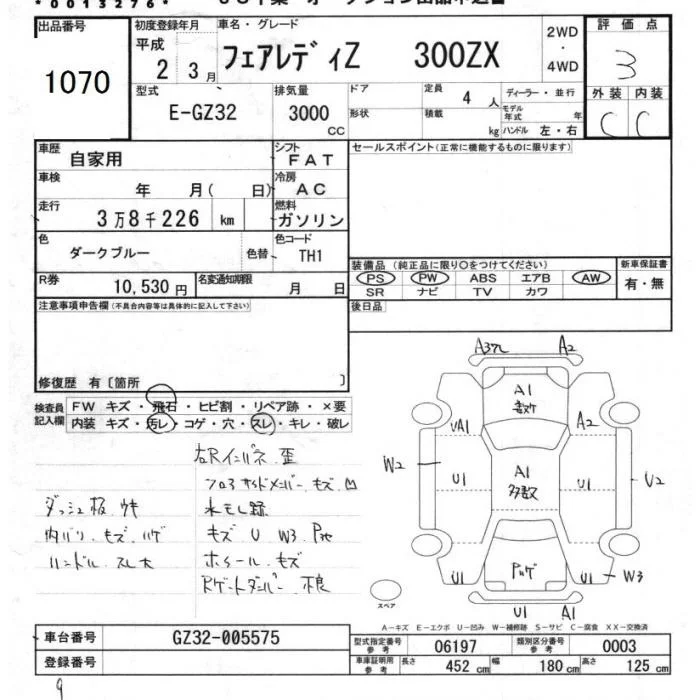 *0013276*
出品番号
1070
初度登録年月
平成
2 3月
車名・グレード
フェアレディZ 300ZX
2WD
・
4WD
評価点
3
外装 内装
C C
型式
E-GZ32
排気量
3000
CC
ドア
形状
定員
4 人
積載
kg
ディーラー・並行
モデル年式 年
ハンドル 左・右
車歴
自家用
シフト
FAT
車検
年 月( 日)
冷房
AC
走行
3万8千226 km
燃料
ガソリン
色
ダークブルー
色替
色コード
TH1
R券
10,530円
名変通知期限
月 日
セールスポイント(正常に機能するものに限ります)
装備品 (純正品に限り○をつけてください)
PS PW ABS エアB AW
SR ナビ TV カワ
新車保証書
有・無
後日品
注意事項申告欄(不具合内容等は具体的に記入して下さい)
修復歴 有〔箇所 〕
検査員
記入欄
FW キズ・飛石・ヒビ割・リペア跡・×要
内装 キズ・汚レ・コゲ・穴・スレ・キレ・破レ
右Rインパネ 歪
フロア サイドメンバー キズ 凹
ダッシュ板 ウキ
水モレ跡
内バリ キズ ハゲ
キズ U W3
ハンドル スレ大
ホイール キズ
Rゲートダンパー 不良
A2
A1
A1
A2
W2
U1
A1
多数
U1
U2
U1
U1
W3
U1
A1
スペア
A-キズ E-エクボ U-凹み W-補修跡 S-サビ C-腐食 XX-交換済
車台番号
GZ32-005575
登録番号
型式指定番号
参考
06197
類別区分番号
参考
0003
車庫証明用
参考
長さ
452 cm
幅
180 cm
高さ
125 cm
9